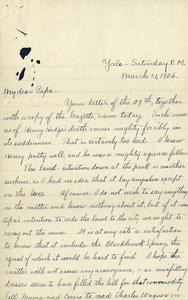 Yale - Saturday P.M.
March 31, 1906.
My dear Papa:-
Your letter of the 29th, together
with a copy of the Gazette, came today. Such news
as of Henry Hedges death comes mighty forcibly, in
its suddenness. That is certainly too bad. I knew
Henry pretty well, and he was a mighty square fellow.
The land-situation down at the park is another
surprise, as I had no idea that it lay anywhere except
on the
Of course I do not wish to say anything
in the matter and know nothing about it, but if it was
Opa's intention to cede the land to the city, we ought to
carry out the same. It is at any rate a satisfaction
to know that it includes the Blackhawk Spring, the
equal of which it would be hard to find. I hope the
matter will not cause any annoyance, - as
seems to have filled the bill for that commodity.
Tell Mama and to send Charles Wagner's